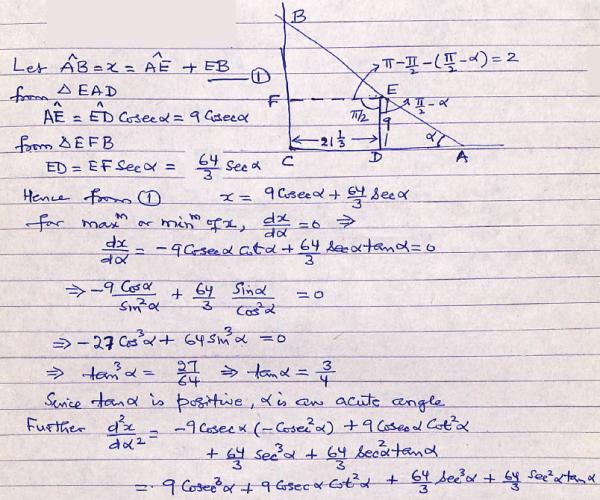 B
Let AB̂ = x = AÊ + EB — ①
π-π/2-(π/2-α)=2
from △EAD
E
F
π/2-α
AÊ = ED̂ Cosecα = 9 Cosecα
π/2
9
from △EFB
21 1/3
α
C
D
A
ED = EF Secα = 64/3 Secα
Hence from ① x = 9Cosecα + 64/3 Secα
for maxᵐ or minᵐ of x, dx/dα = 0 ⇒
dx/dα = -9Cosecα Cotα + 64/3 Secα tanα = 0
⇒ -9 Cosα/Sin²α + 64/3 Sinα/Cos²α = 0
⇒ -27 Cos³α + 64 Sin³α = 0
⇒ tan³α = 27/64 ⇒ tanα = 3/4
Since tanα is positive, α is an acute angle
Further d²x/dα² = -9Cosecα(-Cosec²α) + 9Cosecα Cot²α
+ 64/3 Sec³α + 64/3 Sec²α tanα
= 9 Cosec³α + 9 Cosecα Cot²α + 64/3 Sec³α + 64/3 Sec²α tanα